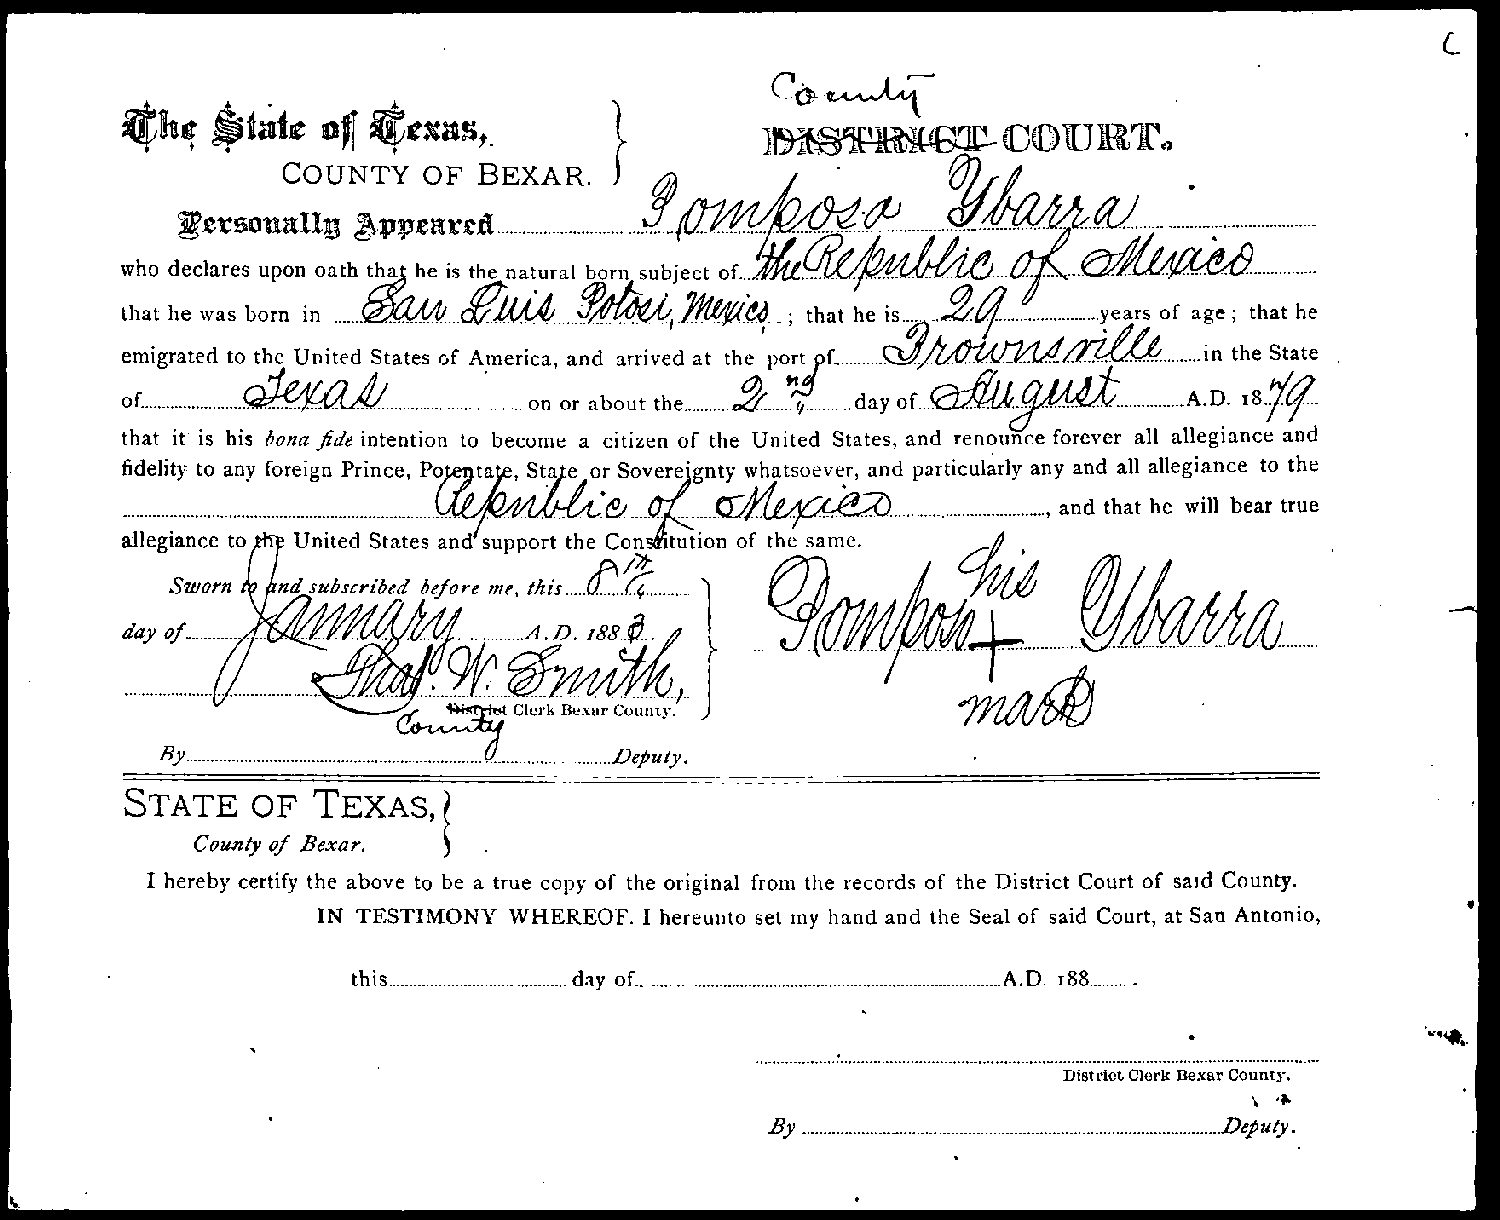 C
County
The State of Texas,
DISTRICT COURT.
COUNTY OF BEXAR.
Personally Appeared Pomposo Ybarra
who declares upon oath that he is the natural born subject of the Republic of Mexico
that he was born in San Luis Potosi, Mexico ; that he is 29 years of age; that he
emigrated to the United States of America, and arrived at the port of Brownsville in the State
of Texas on or about the 2nd day of August A.D. 1879
that it is his bona fide intention to become a citizen of the United States, and renounce forever all allegiance and
fidelity to any foreign Prince, Potentate, State or Sovereignty whatsoever, and particularly any and all allegiance to the
Republic of Mexico , and that he will bear true
allegiance to the United States and support the Constitution of the same.
Sworn to and subscribed before me, this 8th
day of January A.D. 188
Thas. W. Smith,
District Clerk Bexar County.
County
By Deputy.
his
Pomposo + Ybarra
mark
STATE OF TEXAS,
County of Bexar.
I hereby certify the above to be a true copy of the original from the records of the District Court of said County.
IN TESTIMONY WHEREOF. I hereunto set my hand and the Seal of said Court, at San Antonio,
this day of A.D. 188
District Clerk Bexar County.
By Deputy.